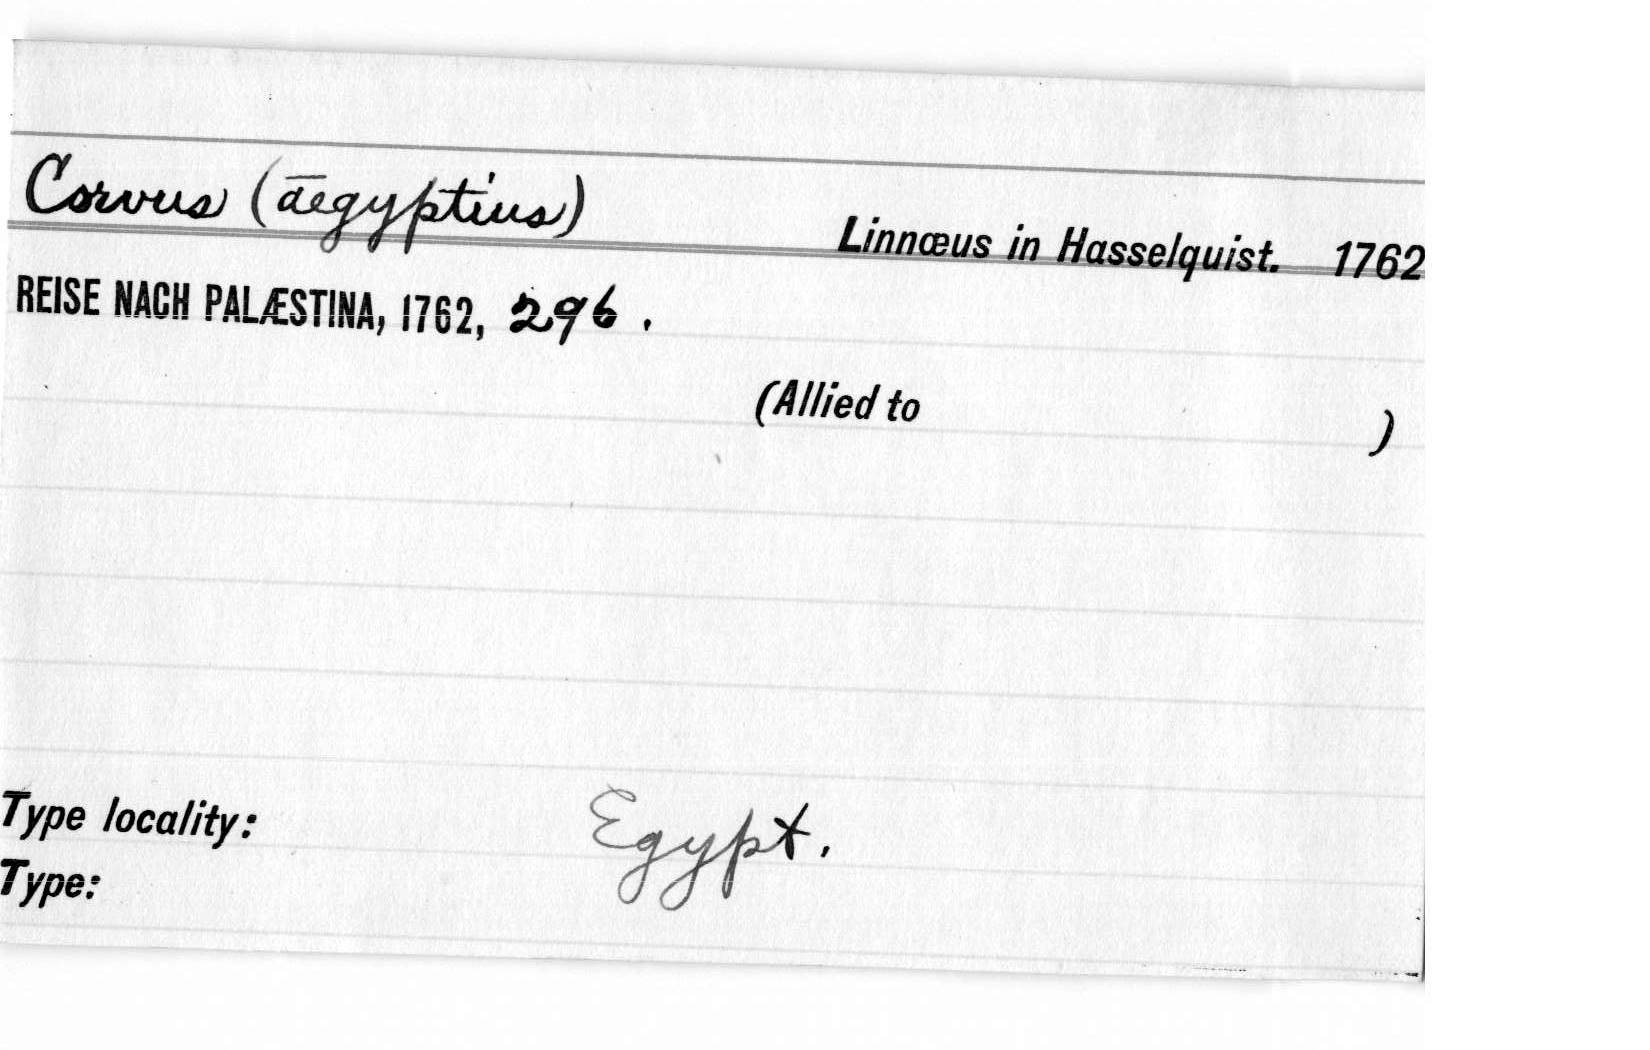 Corvus (aegyptius)
Linnæus in Hasselquist. 1762
REISE NACH PALÆSTINA, 1762, 296.
(Allied to )
Type locality: Egypt.
Type: